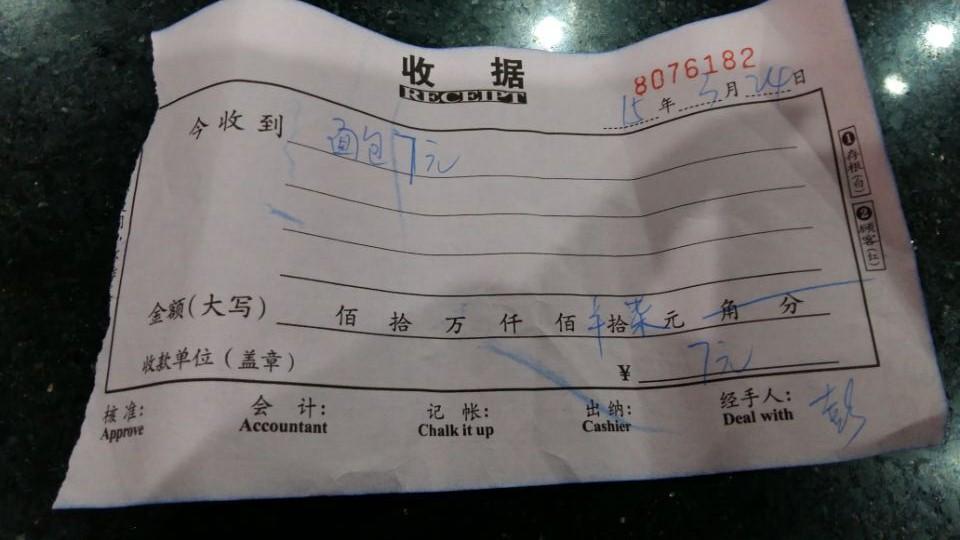 收 据
RECEIPT
8076182
15年5月24日
今收到 面包 7元
❶存根(白)
❷顾客(红)
金额(大写) 佰 拾 万 仟 佰 拾柒元 角 分
收款单位(盖章) ¥ 7元
核准: 会 计: 记 帐: 出 纳: 经手人: 彭
Approve Accountant Chalk it up Cashier Deal with